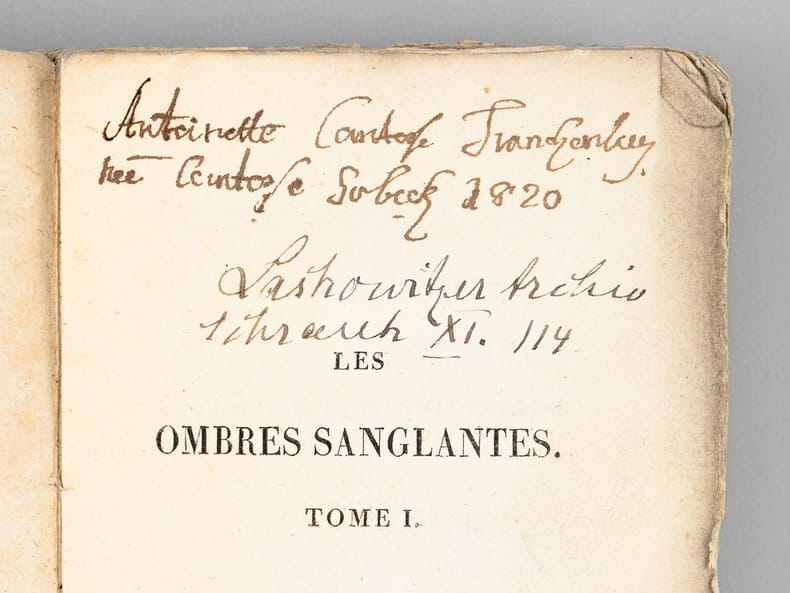 Antoinette Comtesse Franckenberg
née Comtesse Sobeck 1820
Laskowitzer Archiv
Schranck XI. 114
LES
OMBRES SANGLANTES.
TOME I.